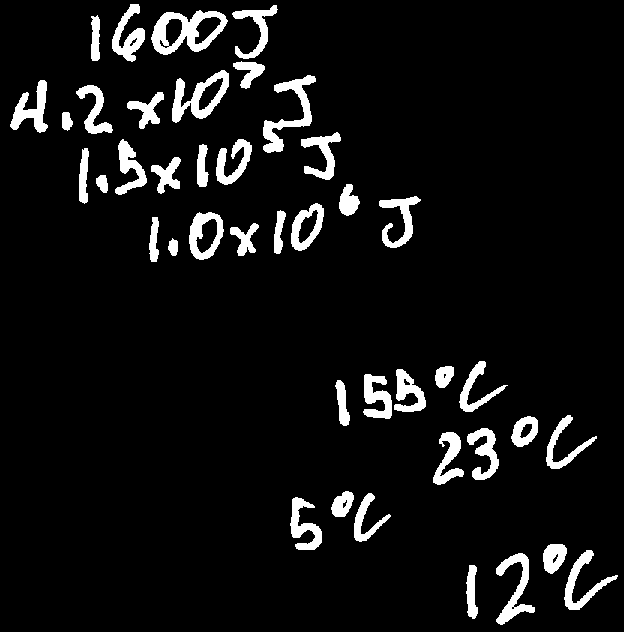 1600J
4.2x10⁷ J
1.5x10⁵ J
1.0x10⁶ J
155°C
23°C
5°C
12°C